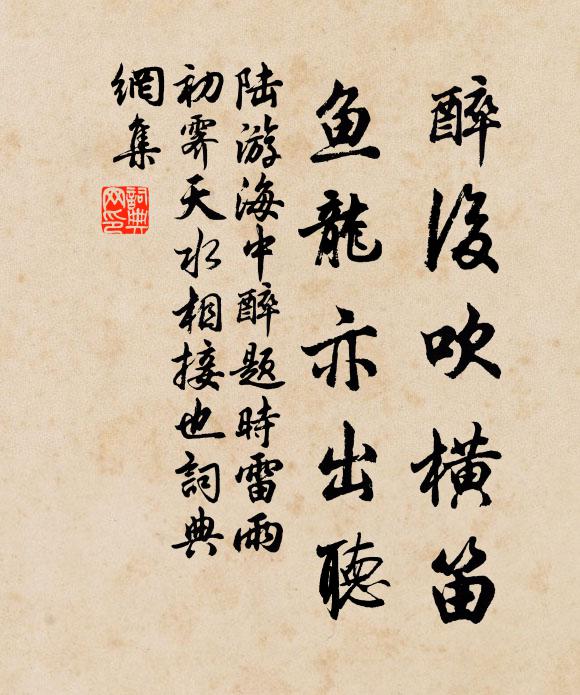 醉後吹橫笛
魚龍亦出聽
陆游海中醉題時雷雨
初霁天水相接也詞典
網集
詞典
网印